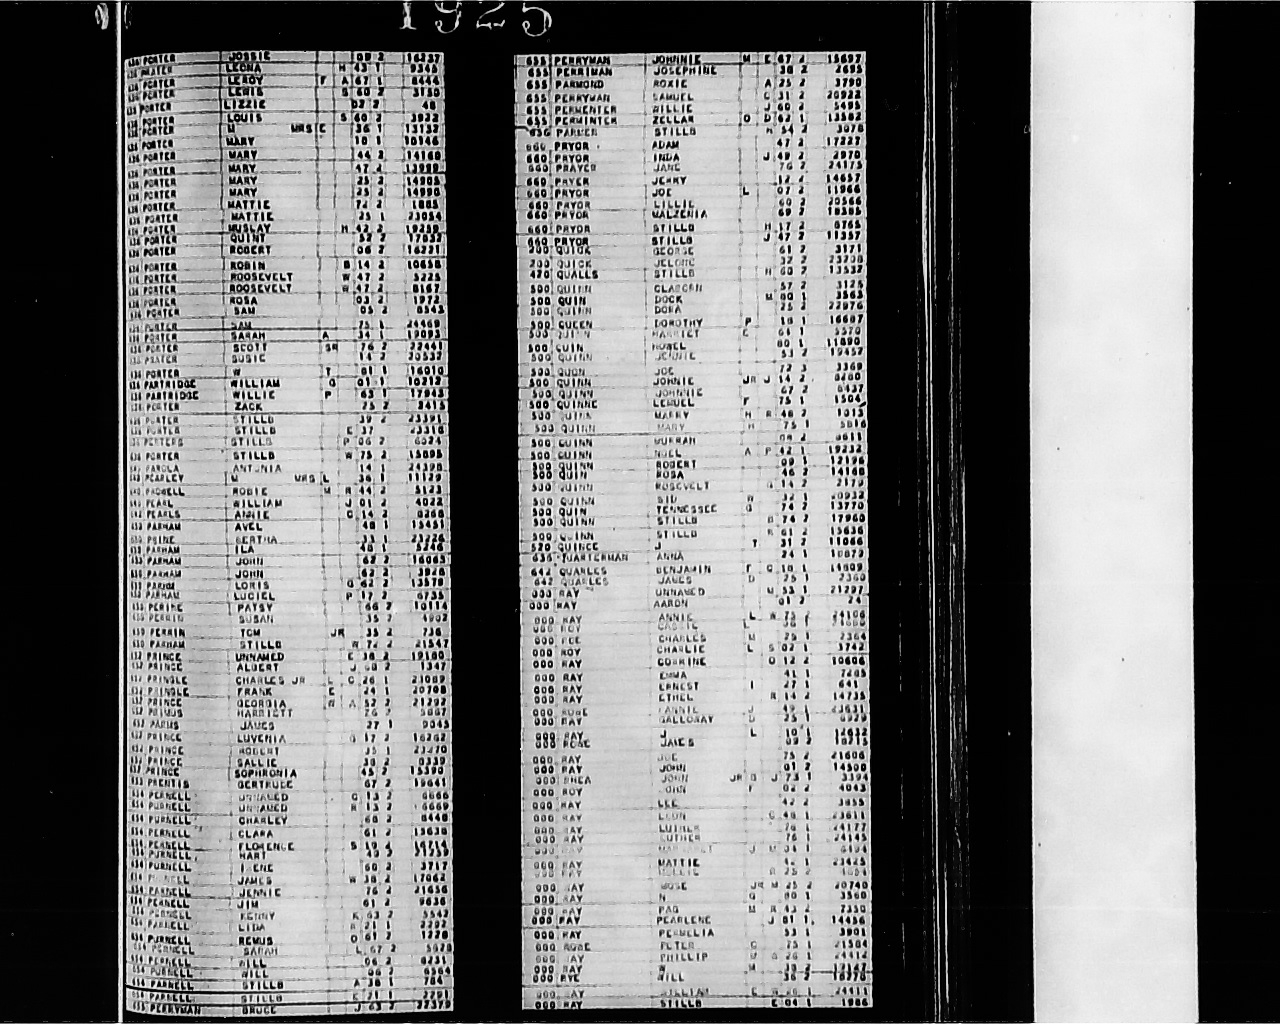 1925
PORTER JOSSIE 09 2 16237
PORTER LEONA H 43 1 9361
PORTER LEROY F A 67 1 8444
PORTER LEWIS S 60 2 3150
PORTER LIZZIE 02 2 48
PORTER LOUIS S 60 2 3922
PORTER M MRS E 36 1 13132
PORTER MARY 10 1 10146
PORTER MARY 44 2 14160
PORTER MARY 47 2 13999
PORTER MARY 25 2 14905
PORTER MARY 25 1 14990
PORTER MATTIE 72 2 1885
PORTER MATTIE 25 1 23054
PORTER MUSLAY H 42 2 19259
PORTER QUINT 52 2 17532
PORTER ROBERT 06 2 16221
PORTER ROBIN B 14 2 10658
PORTER ROOSEVELT W 47 2 5225
PORTER ROOSEVELT W 47 2 8167
PORTER ROSA 03 2 1972
PORTER SAM 05 2 8543
PORTER SAM 75 1 24469
PORTER SARAH A 34 1 19093
PORTER SCOTT SR 76 2 22441
PORTER SUSIE 14 2 20532
PORTER W T 01 1 16010
PARTRIDGE WILLIAM G 01 1 10212
PARTRIDGE WILLIE P 63 1 17943
PORTER ZACK 75 2 3415
PORTER STILLB 39 2 23391
PORTER STILLB E 37 23318
PORTERS STILLB P 06 2 6024
PORTER STILLB W 75 2 15895
PAROLA ANTONIA 14 1 24398
PEARLEY M MRS L 36 1 11129
PAGWELL ROBIE M R 44 2 5123
PEARL WILLIAM J 01 2 4022
PEARLS ANNIE C 14 2 8268
PARHAM AVEL 48 1 15451
PRINE BERTHA 33 1 21226
PARHAM ILA 48 1 5246
PARHAM JOHN 62 2 16065
PARHAM JOHN 62 2 3926
PARHM LORIS G 62 2 13579
PARHAM LUCIEL P 17 2 6735
PERINE PATSY 66 2 10114
PERRIN SUSAN 35 2 4902
PERRIN TOM JR 35 2 736
PARHAM STILLB W 72 2 21547
PRINCE UNNAMED E 38 2 19180
PRINCE ALBERT J 60 2 1347
PRINGLE CHARLES JR L C 26 1 21089
PRINGLE FRANK E 24 1 20708
PRINCE GEORGIA W A 52 2 21292
PRIMUS HARRIETT 76 2 5067
PARMS JAMES 27 1 9045
PRINCE LUVENIA G 17 2 16262
PRINCE ROBERT 35 1 23270
PRINCE SALLIE 38 2 8339
PRINCE SOPHRONIA 45 2 15390
PRENTIS GERTRUDE 67 2 19641
PERNELL UNNAMED C 13 2 6666
PURNELL UNNAMED R 13 2 6669
PURNELL CHARLEY 60 2 8440
PERNELL CLARA 61 2 15630
PERNELL FLORENCE S 10 2 16714
PURNELL HART 49 2
PURNELL IRENE 60 2 3717
JAMES W 38 2 17062
PARNELL JENNIE 76 2 21656
PERNELL JIM 61 2 9636
PURNELL KENNY K 63 2 5542
PARNELL LIDA R 21 1 2292
PURNELL REMUS O 61 2 7220
PERNELL SARAH L 67 2 5928
PERNELL WILL 06 2 8231
PURNELL WILL 06 2 6564
PARNELL STILLB A 38 1 784
PARNELL STILLB E 21 1 2291
PERRYMAN BRUCE J 63 2 22379
655 PERRYMAN JOHNNIE M E 67 2 15697
655 PERRIMAN JOSEPHINE 38 2 2695
655 PARMOND ROXIE A 25 2 3790
655 PERRYMAN SAMUEL C 31 20922
655 PERMENTER WILLIE J 60 2 5495
655 PERMINTER ZELLAR O D 62 1 13582
656 PARMER STILLB H 54 2 3078
660 PRYOR ADAM 47 2 17227
660 PRYOR INDA J 49 2 2970
660 PRAYER JANE 76 2 24175
660 PRYER JERRY 12 2 14657
660 PRYOR JOE L 07 2 11966
660 PRYOR LILLIE 60 2 20566
660 PRYOR MALZENIA 69 2 19585
660 PRYOR STILLB H 17 2 8765
660 PRYOR STILLB J 47 2 11357
200 QUICK GEORGE 61 2 3171
200 QUICK JELONE 32 2 23208
420 QUALLS STILLB H 60 2 13537
500 QUINN CLABORN 57 2 3125
500 QUIN DOCK M 80 1 3563
500 QUINN DORA 25 2 22976
500 QUEEN DOROTHY P 18 1 16687
500 QUINN HARRIET E 61 1 5570
500 QUIN HOWEL 80 1 11890
500 QUINN JENNIE 53 2 19457
500 QUON JOE 72 3 3369
500 QUINN JOHNIE JR J 14 2 8280
500 QUINN JOHNNIE 67 2 8437
500 QUINNE LEMUEL F 75 1 1504
500 QUINN MARRY H R 46 2 1013
500 QUINN MARY H 75 1 5816
500 QUINN MURRAH 08 2 8611
500 QUINN NOEL A P 42 1 19232
500 QUINN ROBERT 09 1 12196
500 QUIN ROSA 46 2 14168
500 QUINN ROSEVELT G 14 2 2179
500 QUINN SID W 32 1 20932
500 QUIN TENNESSEE G 74 2 13770
500 QUINN STILLB B 74 2 17960
500 QUINN STILLB R 61 2 15636
520 QUINCE J T 31 2 11066
636 QUARTERMAN ANNA 24 1 10873
642 QUARLES BENJAMIN F C 18 1 14809
642 QUARLES JAMES D 25 1 2360
000 RAY UNNAMED M 53 1 21297
000 RAY AARON 01 2 24
000 RAY ANNIE L W 75 2 24106
000 ROY
000 ROE CHARLES M 75 1 2364
000 ROY CHARLIE L S 02 1 3742
000 RAY CORRINE O 12 2 10606
000 RAY EMMA 41 1 7285
000 RAY ERNEST I 27 1 641
000 RAY ETHEL R 14 2 14735
000 ROWE FANNIE J 49 1 23631
000 RAY GALLOWAY D 25 1 6929
000 RAY J L 10 1 12632
000 ROWE JAMES 09 2 18715
000 RAY JOE 75 2 21606
000 RAY JOHN 01 2 14500
000 RHEA JOHN JR B J 73 1 3394
000 ROY JOHN F 02 2 4043
000 RAY LEE 42 2 3855
000 RAY LEON C 48 1 23611
000 RAY LUTHER 76 1 24177
000 RAY LUTHER 76 1 24145
000 RAY
000 RAY MATTIE 42 1 23425
000 RAY MOLLIE R 25 2
000 RAY MOSE JR M 25 2 20740
000 RAY N G 80 1 3560
000 RAY PAG M R 43 2 7350
000 RAY PEARLENE J 81 1 14456
000 RAY PERMELIA 53 1 3901
000 ROWE PETER C 75 1 21504
000 RAY PHILLIP M A 26 1 24412
000 RAY W M 39 2 12167
000 RYE WILL 36 2 18270
000 RAY WILLIAM E W 26 1 24411
000 RAY STILLB E 04 1 1986